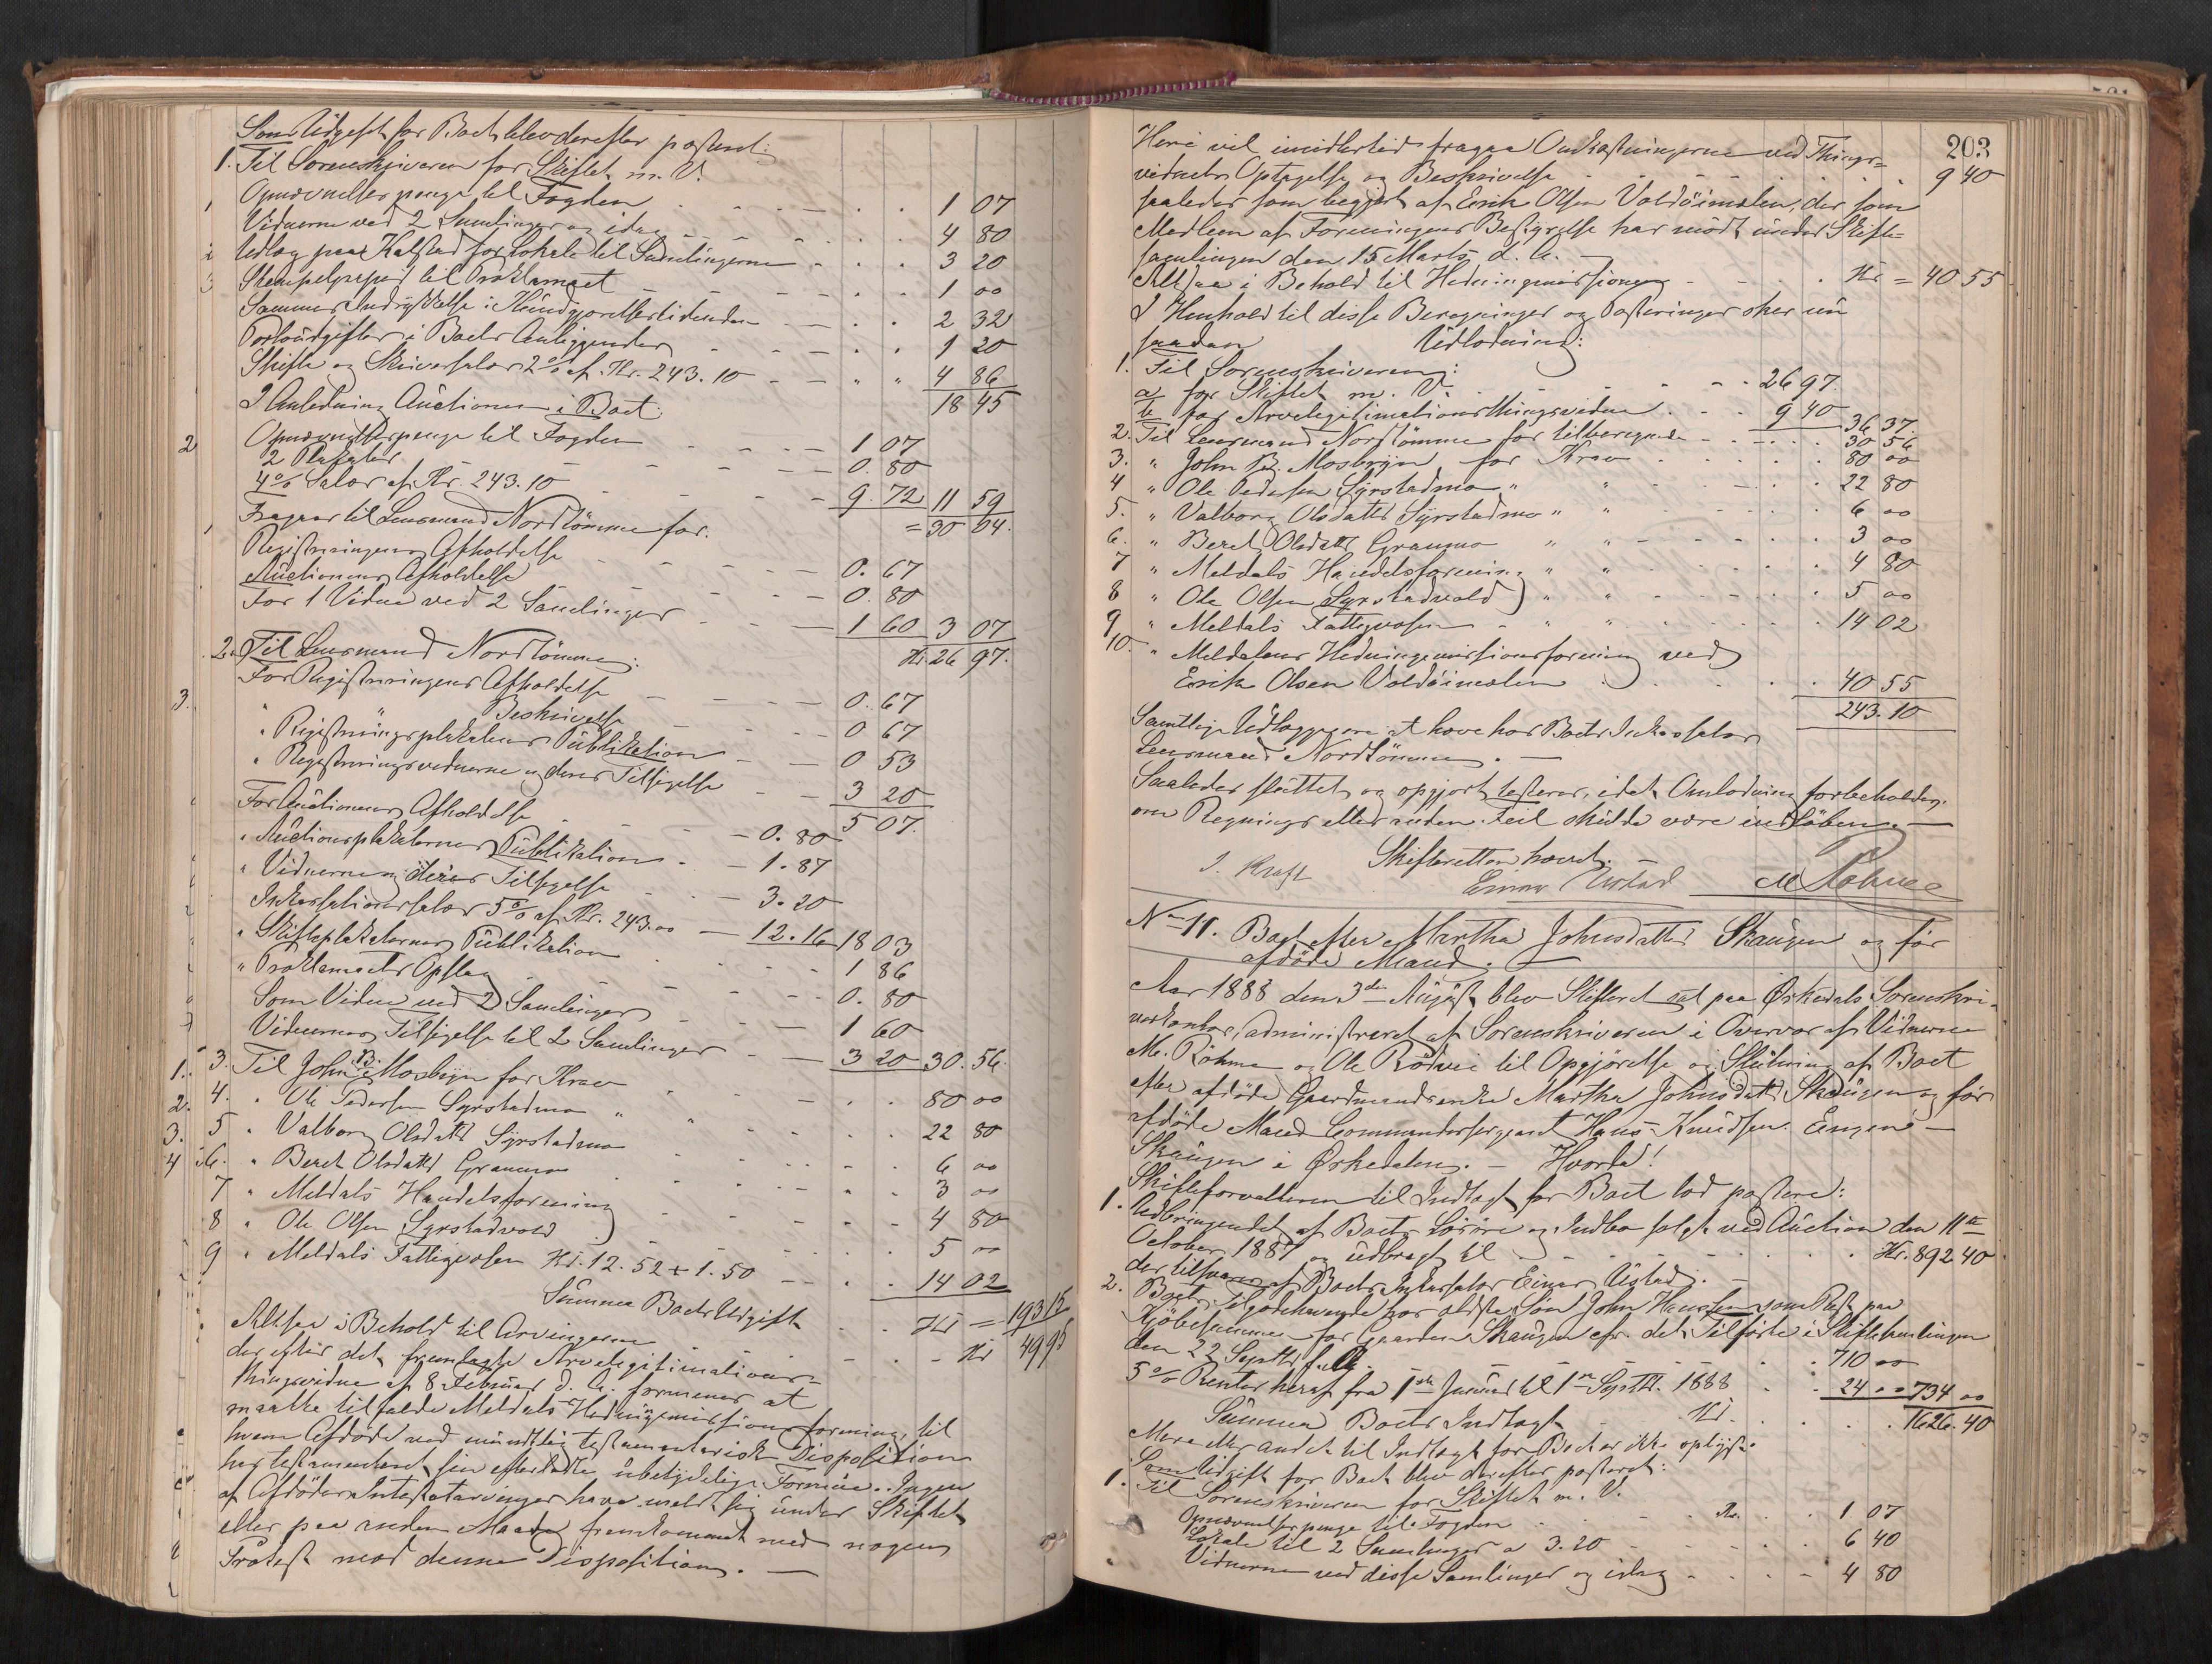 Som Udgift for Boet blev derefter posteret:
1. Til Sorenskriveren for Skiftet m. V.
Opnævnelsespenge til Fogden 1 07
Vidnerne ved 2 Samlinger og idag 4 80
Udlæg paa Kalstad for Lokale til Samlingerne 3 20
Stempelpapir til Proklamaet 1 00
Sammes Indrykkelse i Kundgjørelsestidenden 2 32
Portoudgifter i Boets Anliggender 1 20
Skifte og Skriversalær 2% af Kr. 243.10 4 86
18 45
I Anledning Auctionen i Boet:
Opnævnelsespenge til Fogden 1 07
2 Plakater 0. 80
4% Salær af Kr. 243.10 9. 72 11 59
= 30 04.
Fragaar til Lensmand Nordtömme for:
Registreringens Afholdelse 0. 67
Auctionens Afholdelse 0. 80
For 1 Vidne ved 2 Samlinger 1 60 3 07
Kr. 26 97.
2. Til Lensmand Nordtömme:
For Registreringens Afholdelse 0. 67
" " Beskrivelse 0 67
" Registreringsplakatens Publikation 0 53
" Registreringsvidnerne og deres Tilsigelse 3 20
5 07.
For Auctionens Afholdelse 0. 80
" Auctionsplakaternes Publikation 1. 87
" Vidnerne og deres Tilsigelse 3. 20
Inkassationssalær 5% af Kr. 243.00 12. 16 18 03
" Skifteplakaternes Publikation 1 86
" Proklamaets Opslag 0. 80
Som Vidne ved 2 Samlinger 1 60
Vidnernes Tilsigelse til 2 Samlinger 3 20 30. 56.
3. Til John B. Mosbryn for Krav 80 00
4. " Ole Pedersen Syrstadmo " 22 80
5 " Valborg Olsdatter Syrstadmo 6 00
6. " Beret Olsdatter Granmo 3 00
7 " Meldals Handelsforening 4 80
8 " Ole Olsen Syrstadvold 5 00
9 " Meldals Fattigvæsen Kr. 12.52 + 1.50 14 02
Summa Boets Udgift Kr = 193 15
Altsaa i Behold til Arvingerne Kr 49 95
der efter det fremlagte Arvelegitimations-
thingsvidne af 8 Februar d. A. formenes at
maatte tilfalde Meldals Hedningemissionsforening, til
hvem Afdøde ved mundtlig testamentarisk Disposition
har testamenteret sin efterladte ubetydelige Formue. Ingen
af Afdødes Intestatarvinger have meldt sig under Skiftet
eller paa anden Maade fremkommet med nogen
Protest mod denne Disposition. —
203
Heri vil imidlertid fragaa Omkostningerne ved Things-
vidnets Optagelse og Beskrivelse 9 40
saaledes som begjært af Erik Olsen Voldöimoln, der som
Medlem af Foreningens Bestyrelse har mödt under Skifte-
samlingen den 15 Marts d. A. —
Altsaa i Behold til Hedningemissionen Kr = 40 55
I Henhold til disse Beregninger og Posteringer sker nu
saadan Udlodning:
1. Til Sorenskriveren:
a/ for Skiftet m. V. 26 97.
b/ for Arvelegitimationsthingsvidne 9 40 36 37.
2. Til Lensmand Nordtömme for tilberegnede 30 56
3. " John B. Mosbryn for Krav 80 00
4 " Ole Pedersen Syrstadmo " " 22 80
5. " Valborg Olsdatter Syrstadmo " " 6 00
6. " Beret Olsdatter Granmo " " 3 00
7 " Meldals Handelsforening " " 4 80
8 " Ole Olsen Syrstadvold " " 5 00
9 " Meldals Fattigvæsen " " 14 02
10. " Meldalens Hedningemissionsforening ved
Erik Olsen Voldöimoln 40 55
243. 10
Samtlige Udlæggene at hæve hos Boets Inkassator
Lensmand Nordtömme. —
Saaledes sluttet og opgjort testerer, idet Omlodning forbeholdes,
om Regnings eller anden Feil skulde være indlöben. —
Skifteretten hævet. —
J. Kraft Einar Ustad M Röhme
No 11. Boet efter Martha Johnsdatter Skaugen og för
afdöde Mand.
Aar 1888 den 3die August blev Skifteret sat paa Ørkedals Sorenskri-
verkontor, administreret af Sorenskriveren i Overvær af Vidnerne
M. Röhme og Ole Rödvei til Opgjörelse og Slutning af Boet
efter afdöde Gaardmandsenke Martha Johnsdatter Skaugen og för
afdöde Mand Commandersergeant Hans Knudsen Engen —
Skaugen i Ørkedalen. — Hvorda!
Skifteforvalteren til Indtægt for Boet lod postere:
1. Udbringendet af Boets Lösöre og Indbo solgt ved Auction den 11te
October 1887 og udbragt til Kr. 892 40
der tilsvares af Boets Inkassator Einar Ustad. —
2. Boets Tilgodehavende hos ældste Sön John Hansen som Rest paa
Kjöbesummen for Gaarden Skaugen cfr. det Tilförte i Skiftesamlingen
den 22 Septbr f. A. 710 00
5% Renter heraf fra 1ste Januar til 1ste Septbr. 1888 24 00 734 00
Summa Boets Indtægt Kr. 1626. 40
Mere eller andet til Indtægt for Boet er ikke oplyst.
Som Udgift for Boet blev derefter posteret:
1. Til Sorenskriveren for Skiftet m. V.
Opnævnelsespenge til Fogden Kr. 1 07
Lokale til 2 Samlinger a 3.20 6 40
Vidnerne ved disse Samlinger og idag 4 80